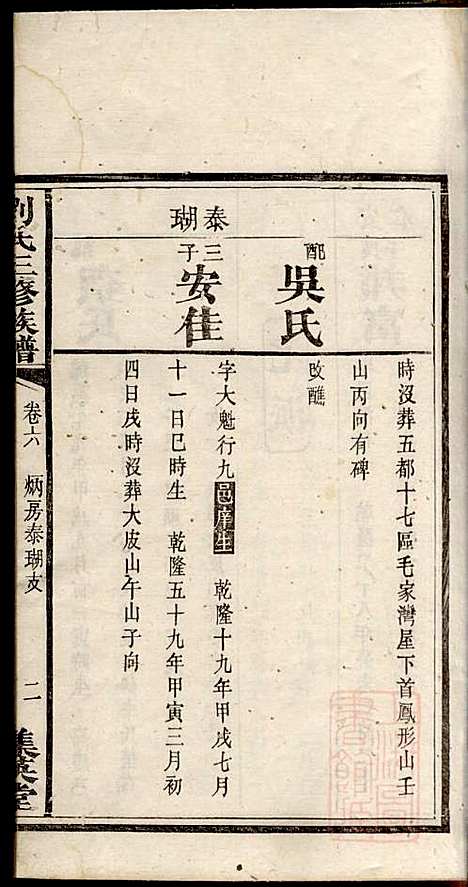 時沒葬五都十七區毛家灣屋下首鳳形山壬
山丙向有碑
配
吳氏
改醮
泰瑚
三子
安佳
字大魁行九邑庠生 乾隆十九年甲戌七月
十一日巳時生 乾隆五十九年甲寅三月初
四日戌時沒葬大皮山午山子向
劉氏三修族譜
卷六 炳房泰瑚支
二
集英堂